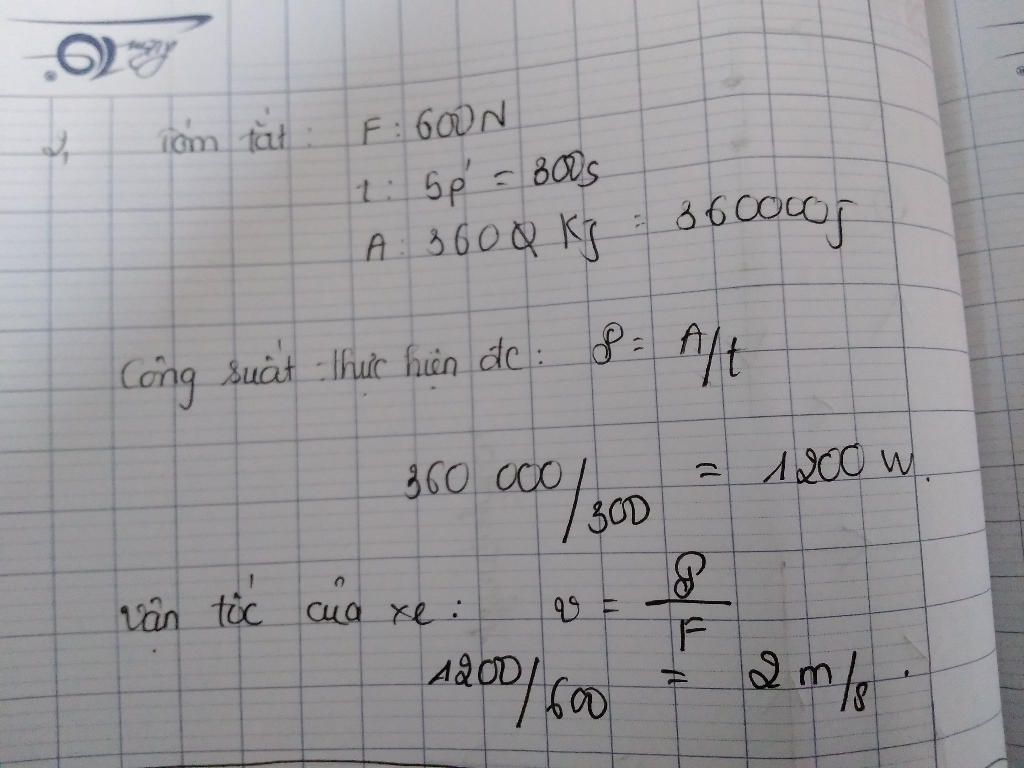 2, Tóm tắt: F: 600N
t: 5p' = 300s
A: 3600 Kj = 360000j
Công suất thực hiện đc: P = A/t
360 000/300 = 1200 W.
Vận tốc của xe: v = P/F
1200/600 = 2 m/s.